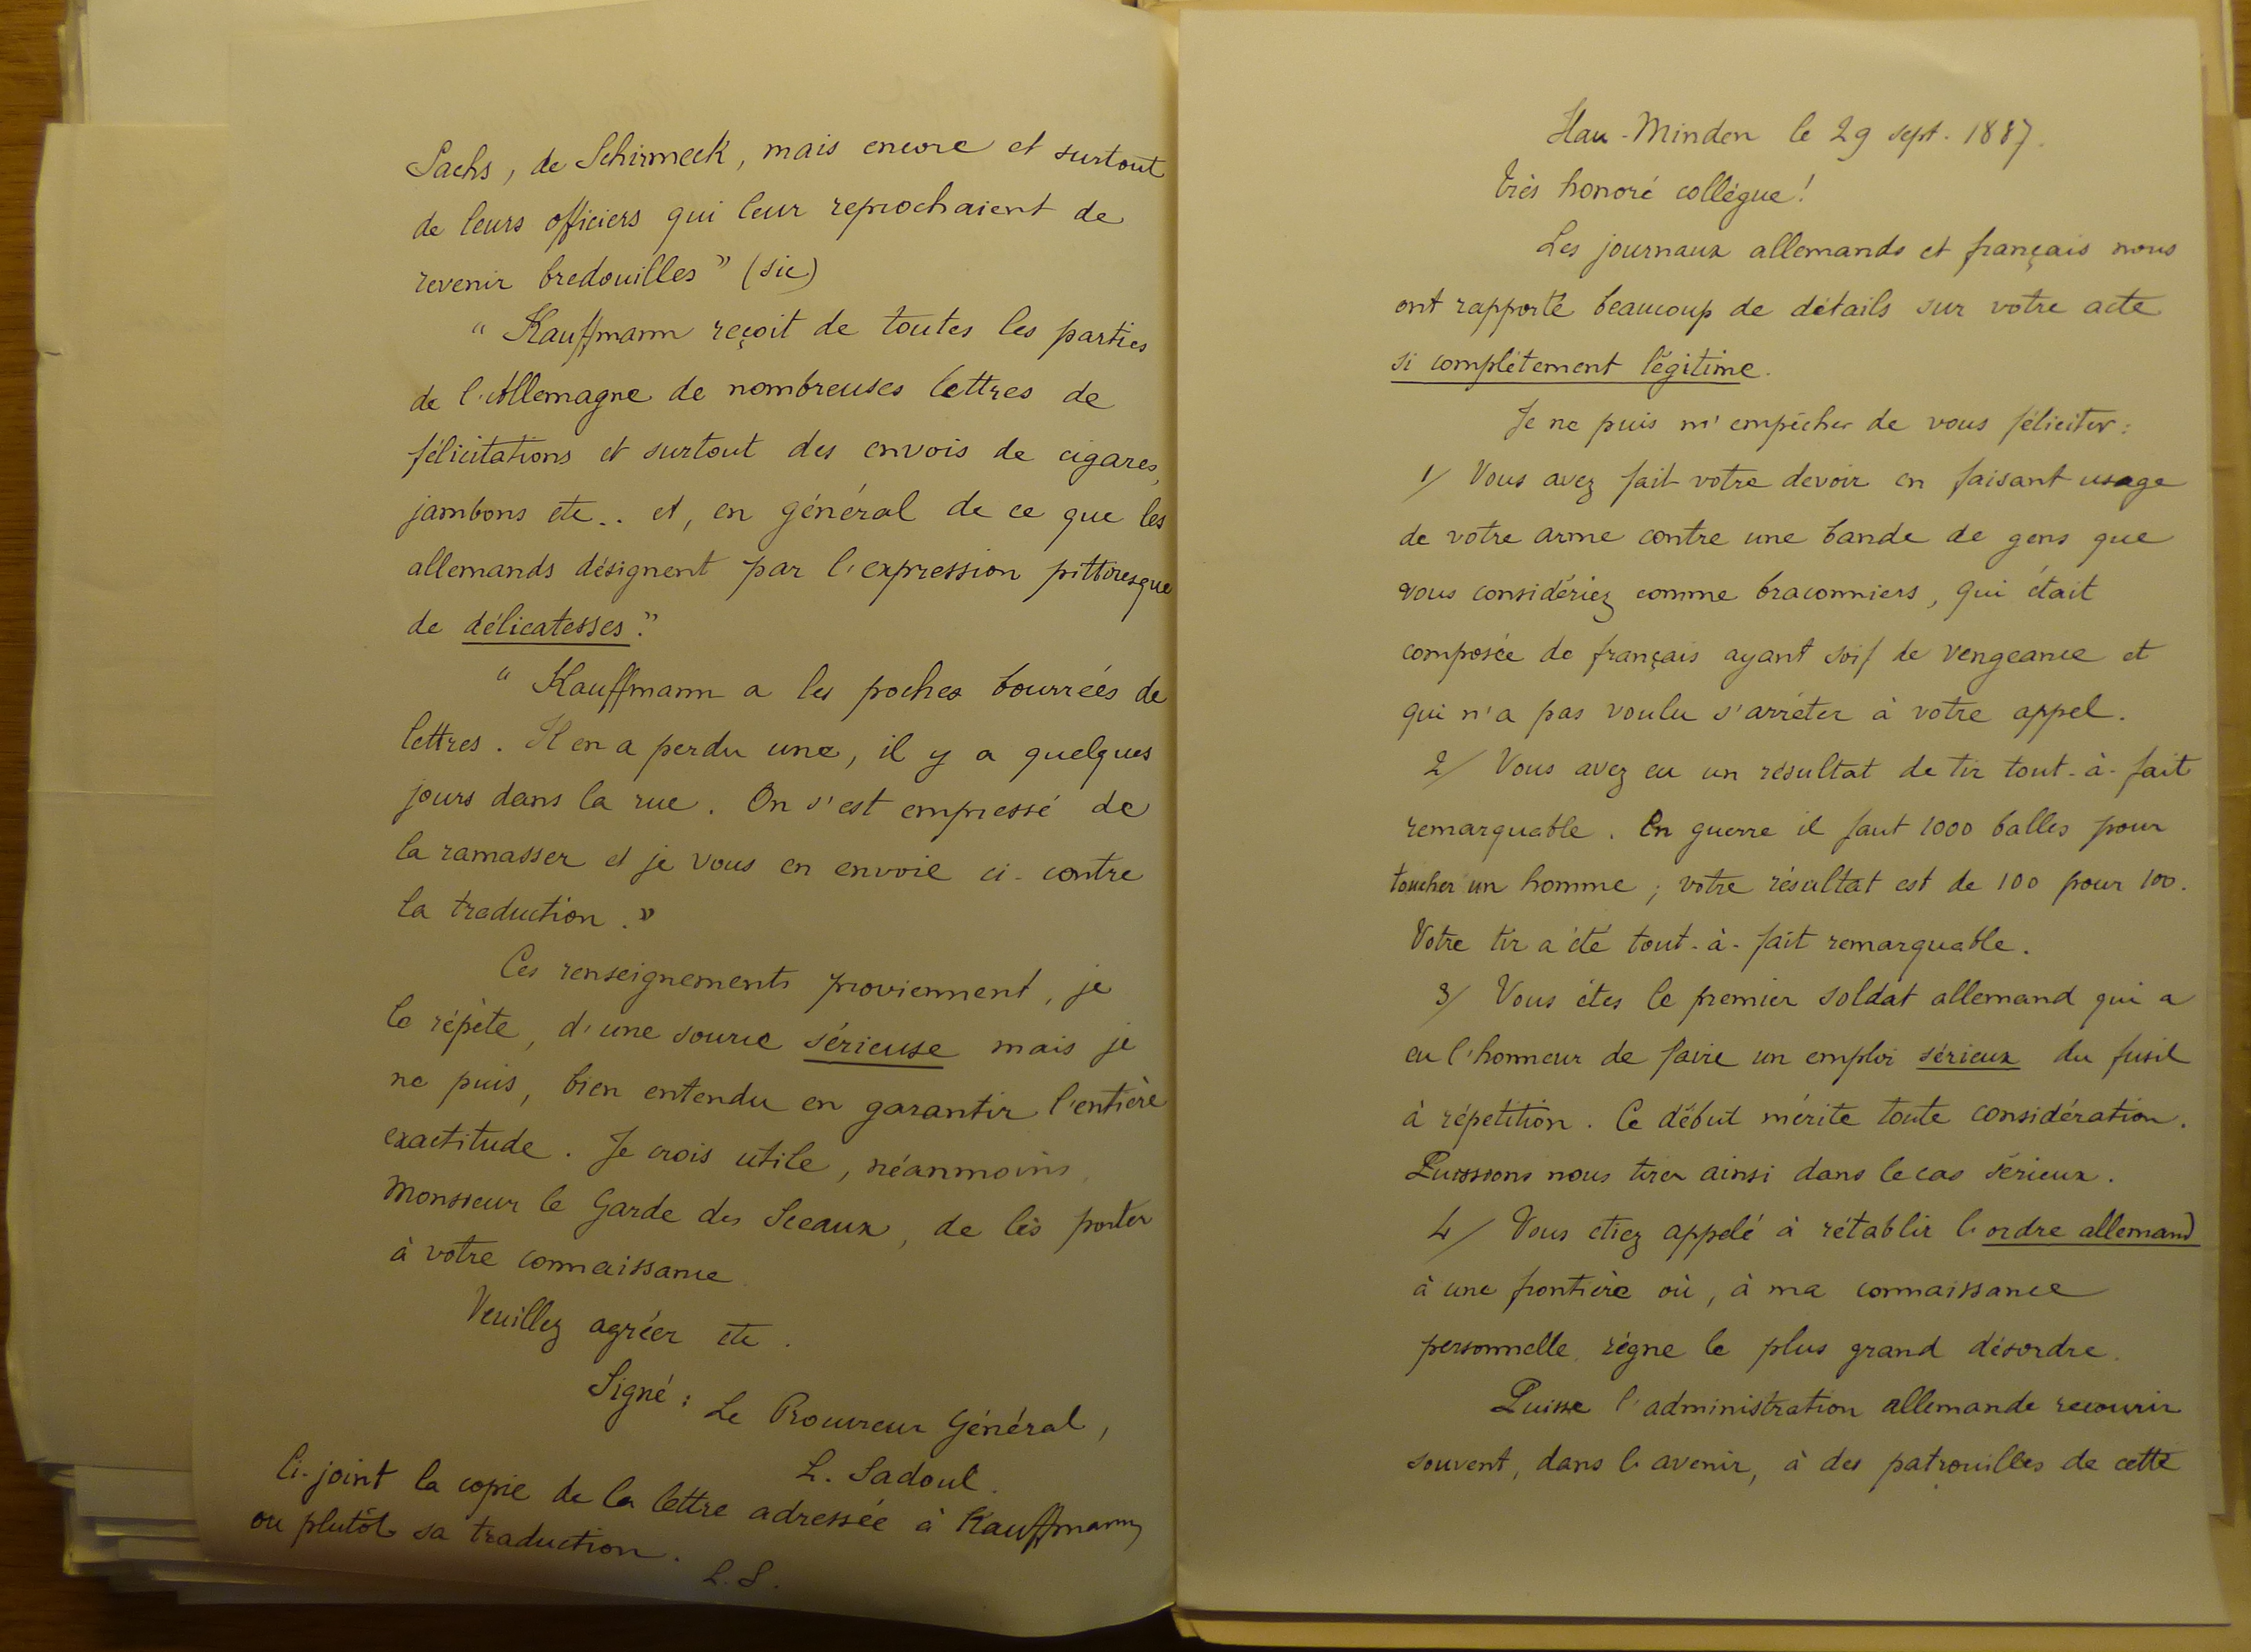 Sachs, de Schirmeck, mais encore et surtout
de leurs officiers qui leur reprochaient de
revenir bredouilles" (sic)
" Kauffmann reçoit de toutes les parties
de l'Allemagne de nombreuses lettres de
félicitations et surtout des envois de cigares,
jambons etc.. et, en général de ce que les
allemands désignent par l'expression pittoresque
de délicatesses."
" Kauffmann a les poches bourrées de
lettres. Il en a perdu une, il y a quelques
jours dans la rue. On s'est empressé de
la ramasser et je vous en envoie ci-contre
la traduction."
Ces renseignements proviennent, je
le répète, d'une source sérieuse mais je
ne puis, bien entendu en garantir l'entière
exactitude. Je crois utile, néanmoins,
Monsieur le Garde des Sceaux, de les porter
à votre connaissance.
Veuillez agréer etc.
Signé: Le Procureur Général,
L. Sadoul.
Ci-joint la copie de la lettre adressée à Kauffmann,
ou plutôt sa traduction.
L.S.
Hau-Minden le 29 sept. 1887.
Très honoré collègue!
Les journaux allemands et français nous
ont rapporté beaucoup de détails sur votre acte
si complètement légitime.
Je ne puis m'empêcher de vous féliciter:
1/ Vous avez fait votre devoir en faisant usage
de votre arme contre une bande de gens que
vous considériez comme braconniers, qui était
composée de français ayant soif de vengeance et
qui n'a pas voulu s'arrêter à votre appel.
2/ Vous avez eu un résultat de tir tout-à-fait
remarquable. En guerre il faut 1000 balles pour
toucher un homme; votre résultat est de 100 pour 100.
Votre tir a été tout-à-fait remarquable.
3/ Vous êtes le premier soldat allemand qui a
eu l'honneur de faire un emploi sérieux du fusil
à répétition. Ce début mérite toute considération.
Puissions nous tirer ainsi dans le cas sérieux.
4/ Vous étiez appelé à rétablir l'ordre allemand
à une frontière où, à ma connaissance
personnelle, règne le plus grand désordre.
Puisse l'administration allemande recourir
souvent, dans l'avenir, à des patrouilles de cette